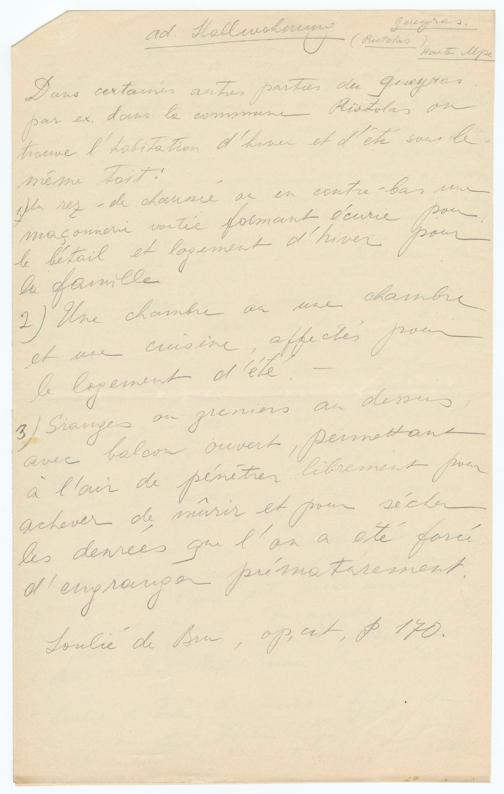 ad. Stallwohnung
Queyras.
(Ristolas)
Haute Alpe
Dans certaines autres parties du Queyras
par ex. dans la commune Ristolas on
trouve l'habitation d'hiver et d'été sous le
même toit:
1) Au rez-de chaussé ou en contre-bas une
maçonnerie voutée formant écurie pour
le bétail et logement d'hiver pour
la famille
2) Une chambre ou une chambre
et une cuisine, affectés pour
le logement d'été. —
3) Granges ou greniers au dessus,
avec balcon ouvert, permettant
à l'air de pénétrer librement pour
achever de mûrir et pour sécher
les denrées que l'on a été forcé
d'engranger prématurement.
de Bru, op, cit, p 170.